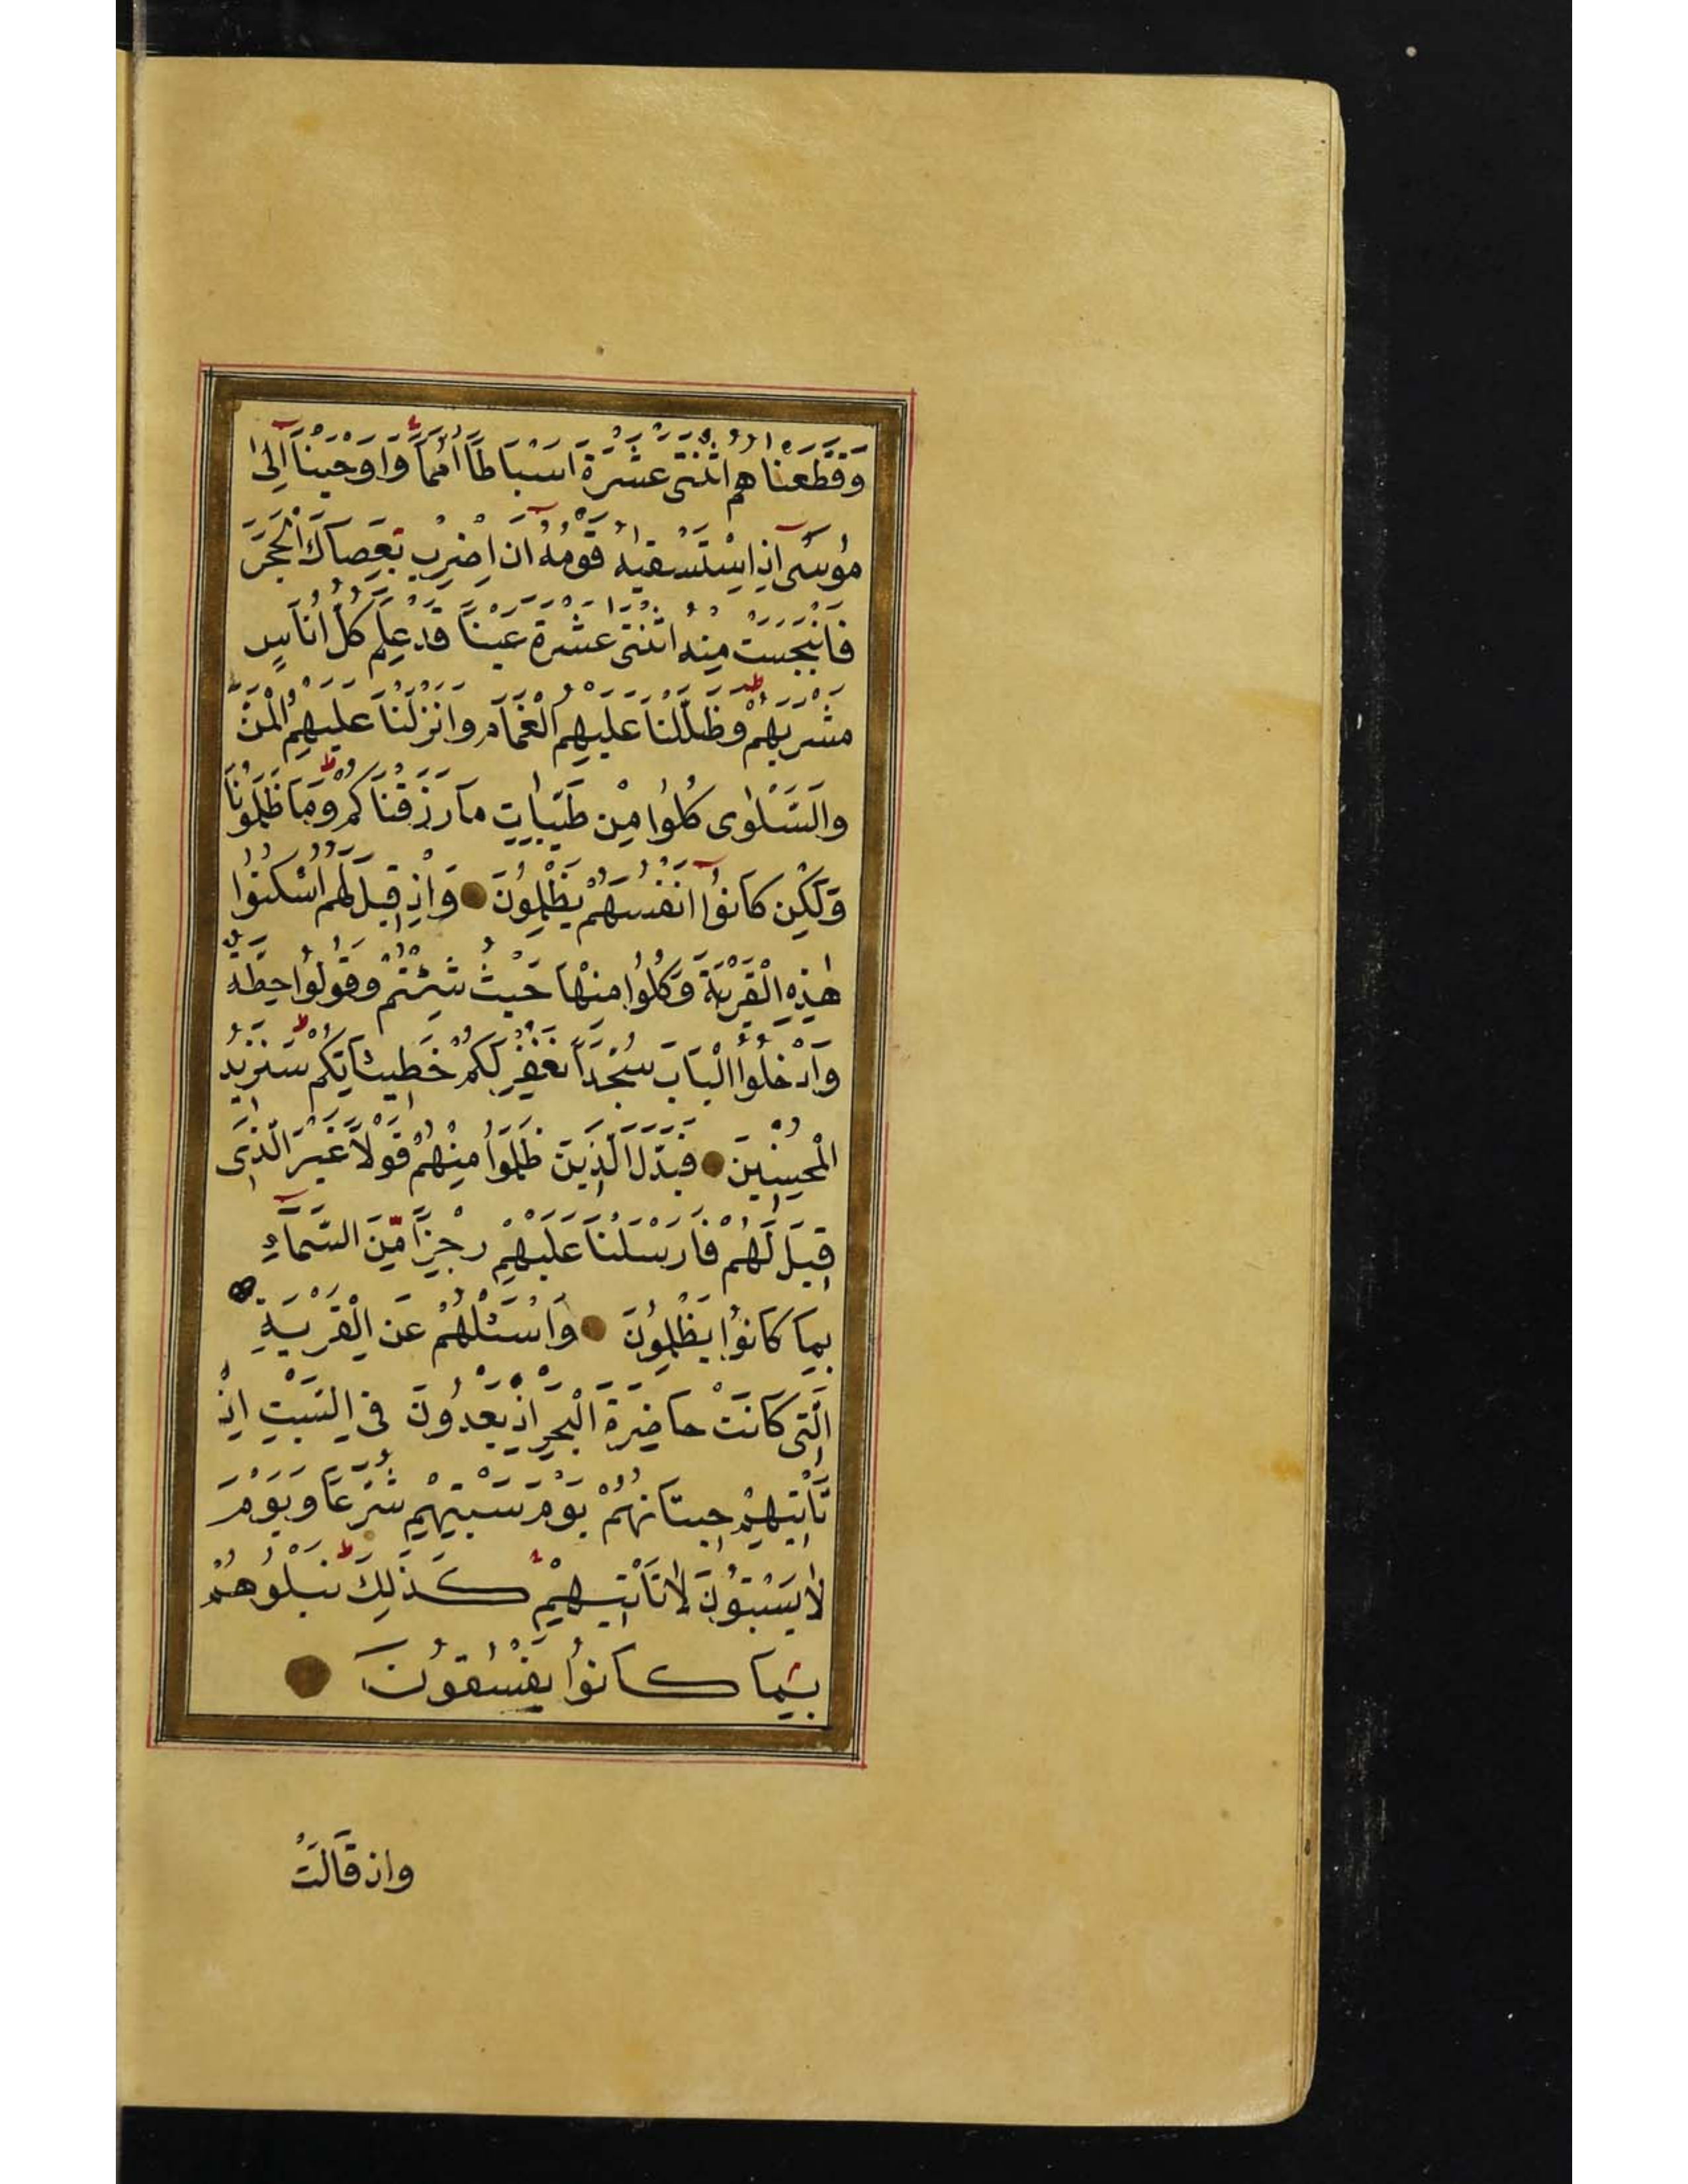 وَقَطَّعْنَاهُمُ اثْنَتَىْ عَشْرَةَ اَسْبَاطًا اُمَمًا وَاَوْحَيْنَآ اِلٰى
مُوسٰٓى اِذِ اسْتَسْقٰيهُ قَوْمُهُٓ اَنِ اضْرِبْ بِعَصَاكَ الْحَجَرَ
فَانْبَجَسَتْ مِنْهُ اثْنَتَىْ عَشْرَةَ عَيْنًا قَدْ عَلِمَ كُلُّ اُنَاسٍ
مَشْرَبَهُمْ وَظَلَّلْنَا عَلَيْهِمُ الْغَمَامَ وَاَنْزَلْنَا عَلَيْهِمُ الْمَنَّ
وَالسَّلْوٰى كُلُوا مِنْ طَيِّبَاتِ مَا رَزَقْنَاكُمْ وَمَا ظَلَمُونَا
وَلٰكِنْ كَانُوٓا اَنْفُسَهُمْ يَظْلِمُونَ وَاِذْ قِيلَ لَهُمُ اسْكُنُوا
هٰذِهِ الْقَرْيَةَ وَكُلُوا مِنْهَا حَيْثُ شِئْتُمْ وَقُولُوا حِطَّةٌ
وَادْخُلُوا الْبَابَ سُجَّدًا نَغْفِرْ لَكُمْ خَطِيئَاتِكُمْ سَنَزِيدُ
الْمُحْسِنِينَ فَبَدَّلَ الَّذِينَ ظَلَمُوا مِنْهُمْ قَوْلًا غَيْرَ الَّذِى
قِيلَ لَهُمْ فَاَرْسَلْنَا عَلَيْهِمْ رِجْزًا مِنَ السَّمَآءِ
بِمَا كَانُوا يَظْلِمُونَ وَاسْئَلْهُمْ عَنِ الْقَرْيَةِ
الَّتِى كَانَتْ حَاضِرَةَ الْبَحْرِ اِذْ يَعْدُونَ فِى السَّبْتِ اِذْ
تَأْتِيهِمْ حِيتَانُهُمْ يَوْمَ سَبْتِهِمْ شُرَّعًا وَيَوْمَ
لَا يَسْبِتُونَ لَا تَأْتِيهِمْ كَذٰلِكَ نَبْلُوهُمْ
بِمَا كَانُوا يَفْسُقُونَ
وَاِذْ قَالَتْ